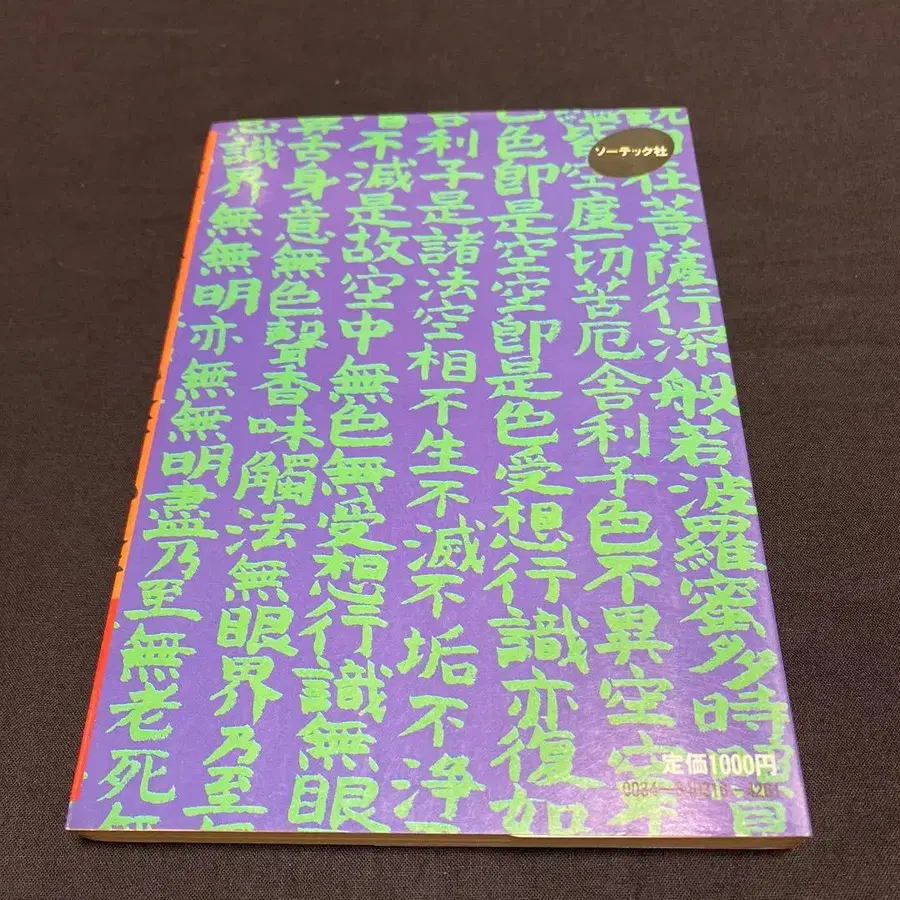 ソーテック社
在菩薩行深般若波羅蜜多時
皆空度一切苦厄舎利子色不異空空不
色色即是空空即是色受想行識亦復如
舎利子是諸法空相不生不滅不垢不浄不
増不減是故空中無色無受想行識無眼
鼻舌身意無色聲香味觸法無眼界乃至無
意識界無無明亦無無明盡乃至無老死無
定価1000円